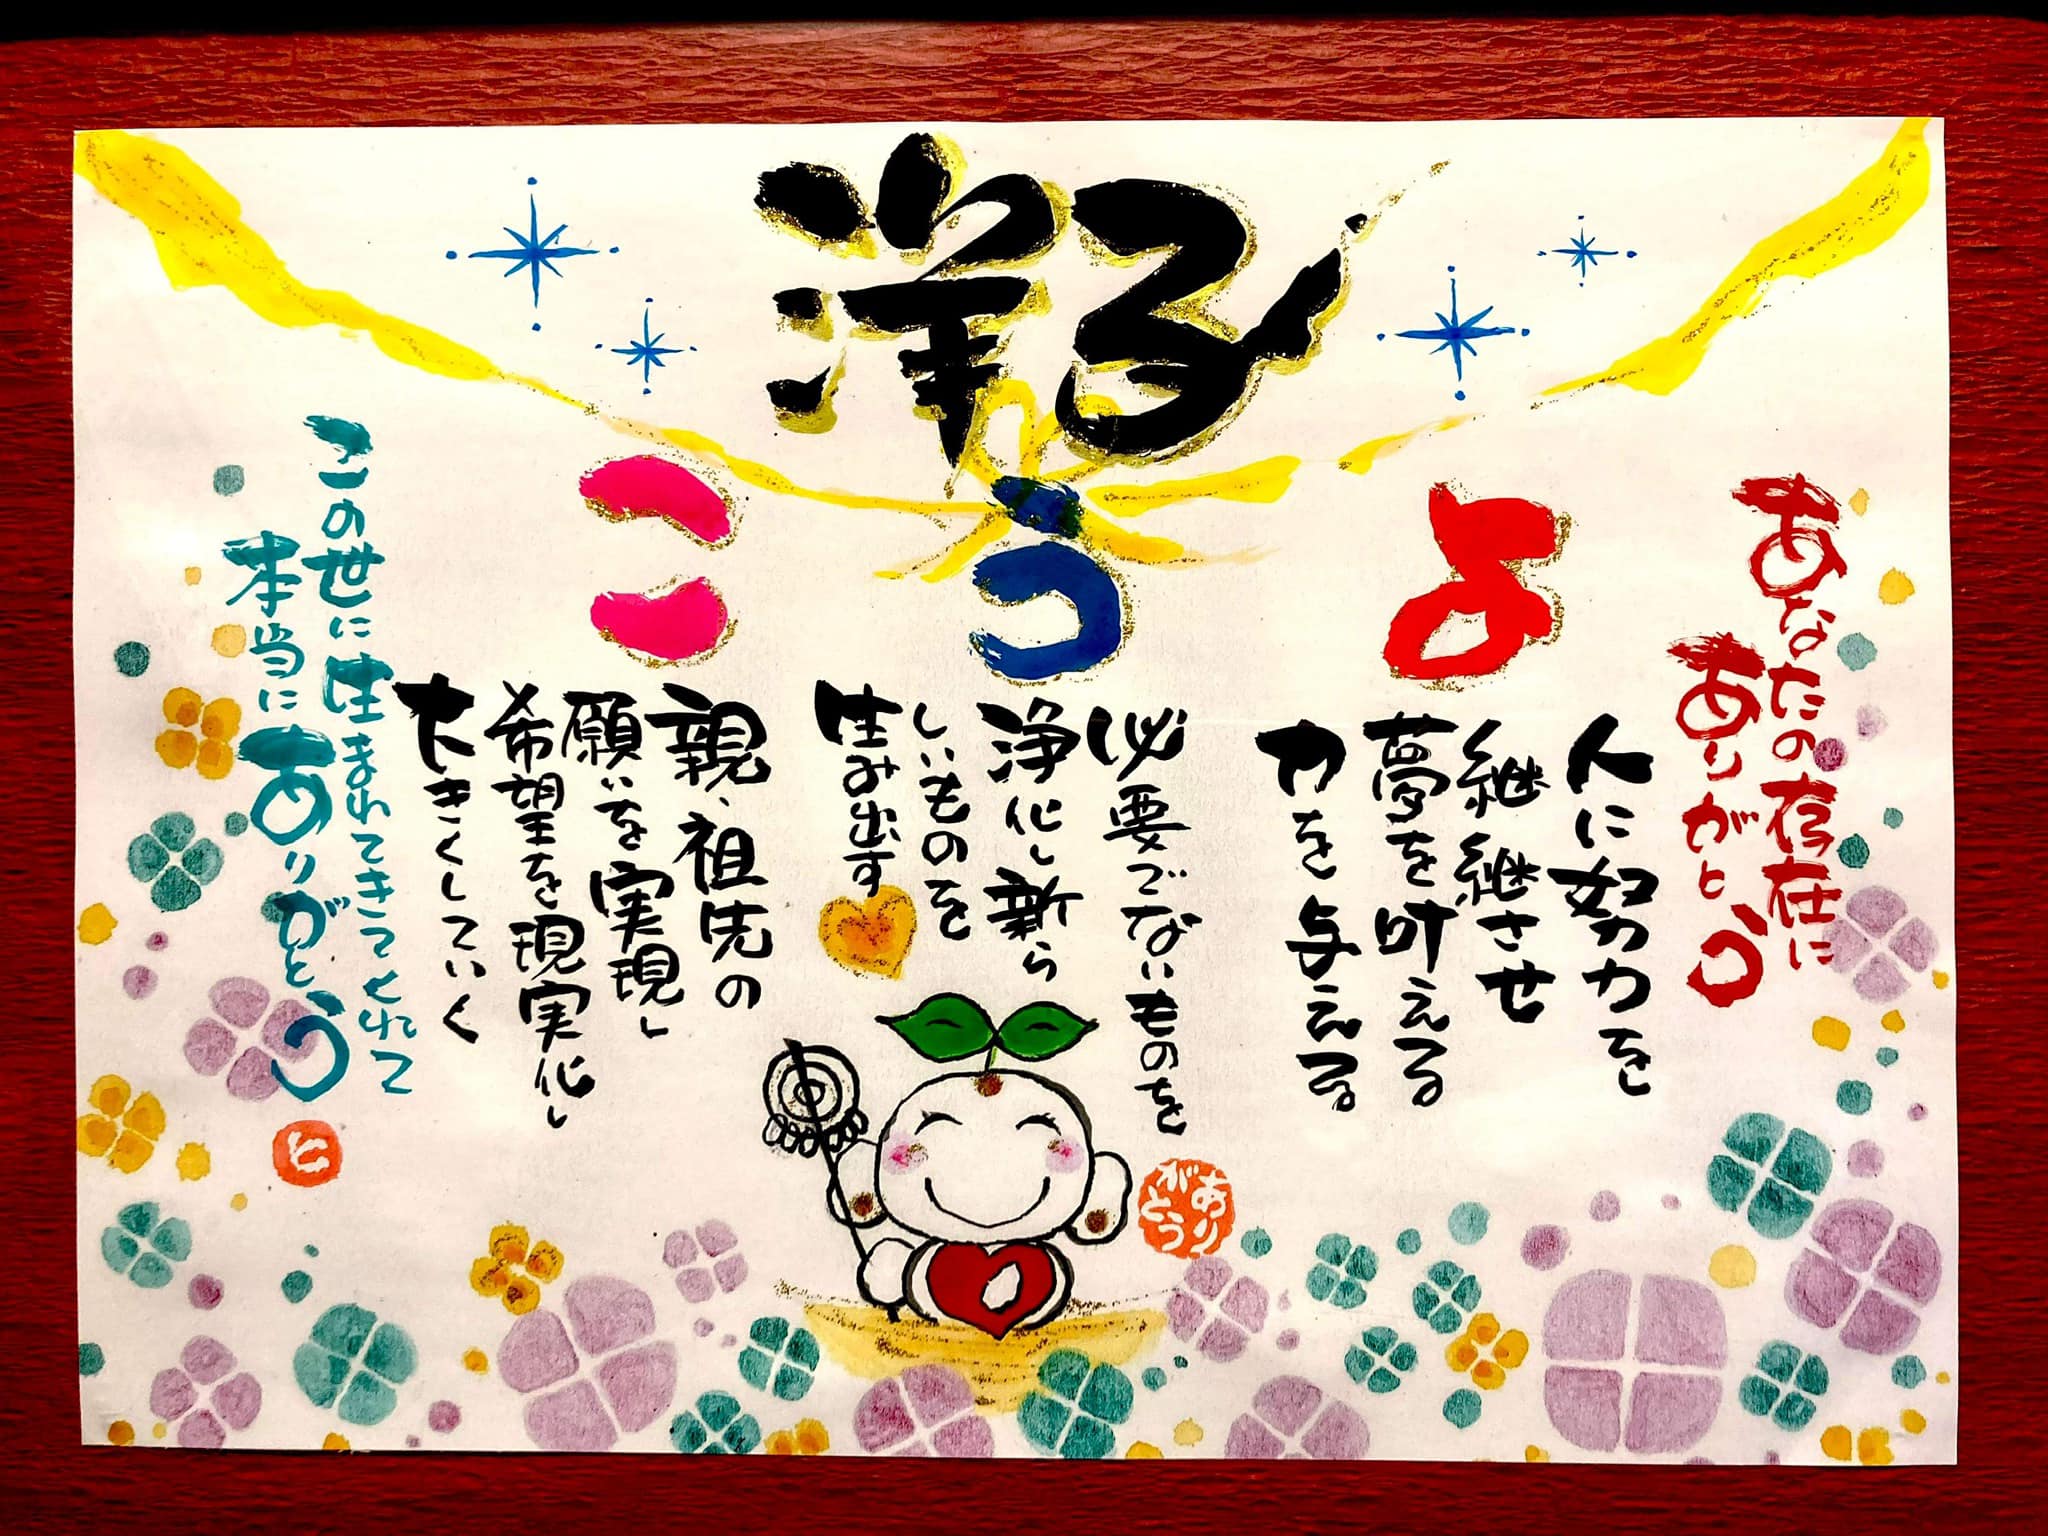 洋子
あなたの存在に
ありがとう
よ
人に努力を
継継させ
夢を叶える
力を与える
う
必要でないものを
浄化し新ら
しいものを
生み出す
こ
親、祖先の
願いを実現し
希望を現実化し
大きくしていく
この世に生まれてきてくれて
本当にありがとう
と
ありがとう